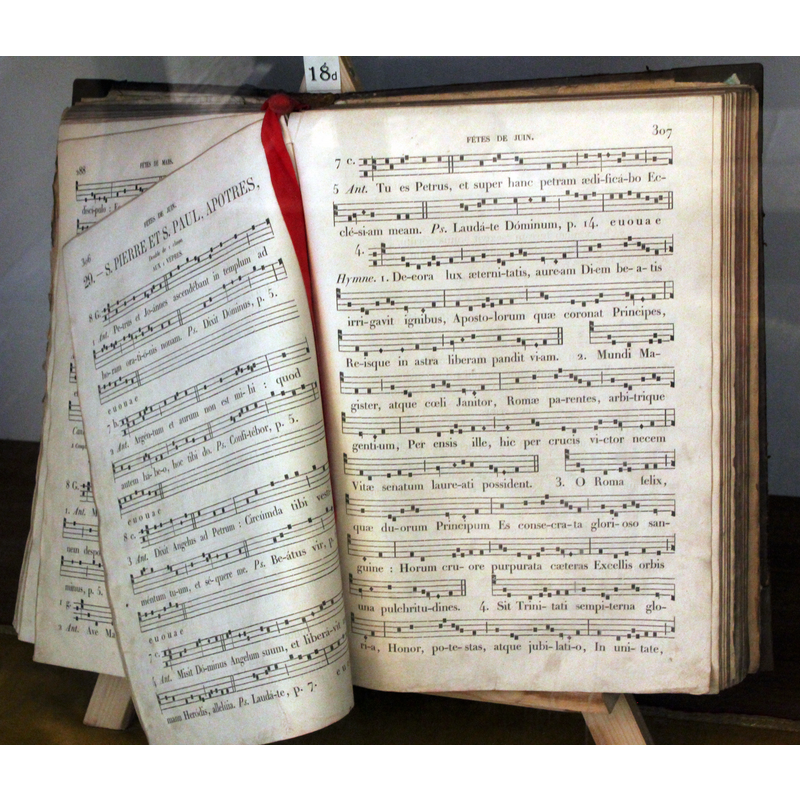 18d
188
FÊTES DE MARS.
discipulo : E
nem despo
minus, p. 5.
3 Ant. Ave Ma
306
FÊTES DE JUIN.
29. — S. PIERRE ET S. PAUL, APOTRES,
Double de 1 classe.
AUX 1 VEPRES.
8 G.
1 Ant. Pe-trus et Jo-ánnes ascendébant in templum ad
ho-ram ora-ti-ó-nis nonam. Ps. Dixit Dóminus, p. 5.
e u o u a e
7 b.
2 Ant. Argén-tum et aurum non est mi-hi : quod
autem há-be-o, hoc tibi do. Ps. Confi-tébor, p. 5.
e u o u a e
8 c.
3 Ant. Dixit Angelus ad Petrum : Circúmda tibi vesti-
mentum tu-um, et sé-quere me. Ps. Be-átus vir, p.
e u o u a e
7 c.
4 Ant. Misit Dó-minus Angelum suum, et liberá-vit
manu Heródis, allelúia. Ps. Laudá-te, p. 7. e u
FÊTES DE JUIN.
307
7 c.
5 Ant. Tu es Petrus, et super hanc petram ædi-ficá-bo Ec-
clé-siam meam. Ps. Laudá-te Dóminum, p. 14. e u o u a e
4.
Hymne. 1. De-cora lux æterni-tatis, auream Di-em be-a-tis
irri-gavit ignibus, Aposto-lorum quæ coronat Principes,
Re-isque in astra liberam pandit vi-am. 2. Mundi Ma-
gister, atque cœli Janitor, Romæ pa-rentes, arbi-trique
genti-um, Per ensis ille, hic per crucis vi-ctor necem
Vitæ senatum laure-ati possident. 3. O Roma felix,
quæ du-orum Principum Es conse-cra-ta glori-oso san-
guine : Horum cru-ore purpurata cæteras Excellis orbis
una pulchritu-dines. 4. Sit Trini-tati sempi-terna glo-
ri-a, Honor, po-te-stas, atque jubi-lati-o, In uni-tate,